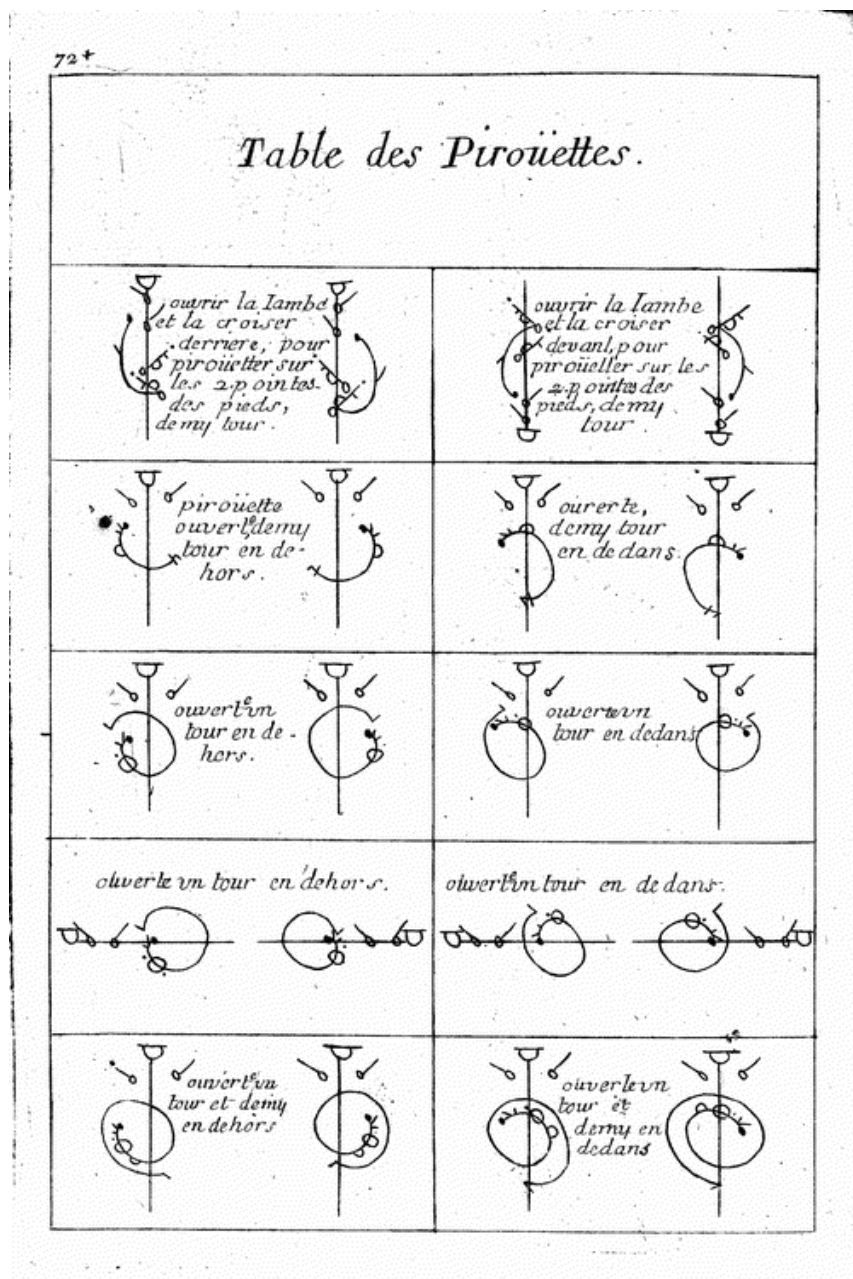 72+
Table des Piroüettes.
ouvrir la Iambe
et la croiser
derriere, pour
piroüetter sur
les 2.pointes
des pieds,
demy tour.
ouvrir la Iambe
et la croiser
devant, pour
piroüetter sur les
2.pointes des
pieds, demy
tour
piroüette
ouverte, demy
tour en de-
hors.
ouverte,
demy tour
en dedans.
ouverte vn
tour en de-
hors.
ouverte vn
tour en dedans
ouverte vn tour en dehors.
ouverte vn tour en dedans.
ouverte vn
tour et demy
en dehors
ouverte vn
tour et
demy en
dedans